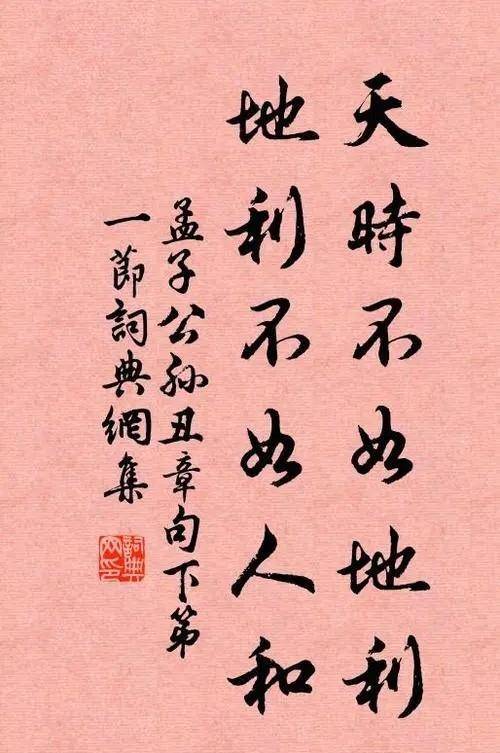 天時不如地利
地利不如人和
孟子公孫丑章句下第
一節詞典網集
詞典網印